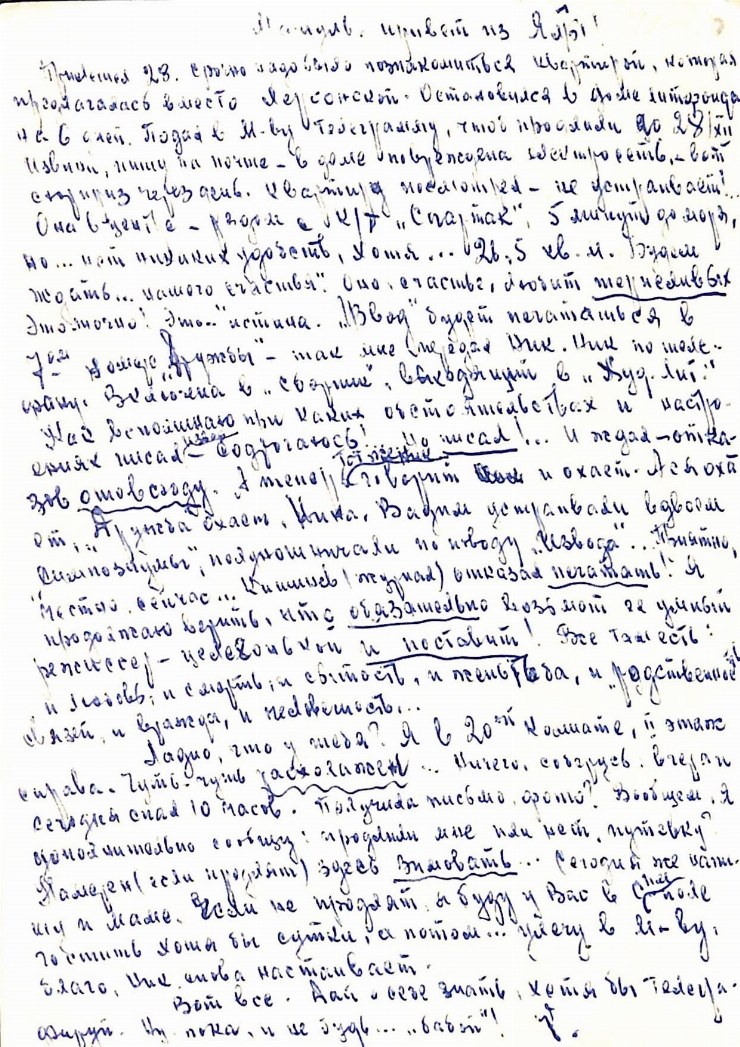 привет из Ялты!
28. Срочно надо было познакомиться квартирой, которая
предлагалась вместо Херсонской. Остановился в доме литфонда
на 6 дней. Подал в М-ву телеграмму, чтоб продлили до 28/XII
Извини, пишу на почте - в доме повреждена электросеть, - вот
сюрприз через день. Квартиру посмотрел - не устраивает!..
Она в центре - рядом с к/т "Спартак", 5 минут до моря,
но... нет никаких удобств, хотя... 26,5 кв. м. Будем
ждать... нашего счастья". Оно, счастье, любит терпеливых
Это точно! Это - истина. "Извод" будет печататься в
7-ом номере "Дружбы" - так мне передал Ник. Ник по теле-
фону. Включена в "сборник", выходящий в "Худ. Лит."
Как вспоминаю при каких обстоятельствах и настро-
ениях писал "Извод" - содрогаюсь! Но писал!... И ждал - отка-
зов отовсюду. А теперь говорит и охает. Ася оха
ет, "Дружба" охает, Нина, Вадим устраивали вдвоем
"Симпозиумы", полуношничали по поводу "Извода"... Приятно,
честно, сейчас... Кишинев (журнал) отказал печатать! Я
продолжаю верить, что обязательно возьмет ее умный
режиссер - целехонькой и поставит! Все там есть:
и любовь, и смерть, и сытость, и женитьба, и "родственность
связей, и вражда, и человечность...
Ладно, что у тебя? Я в 20-ой комнате, II этаж
справа. Чуть-чуть расхоложен... Ничего, соберусь. Вчера и
сегодня спал 10 часов. Получила письмо, фото? Вообщем, я
дополнительно сообщу: продлили мне или нет, путевку?
Намерен (если продлят) здесь зимовать... Сегодня же напи-
шу и маме. Если не продлят, я буду у Вас в С-поле
гостить хотя бы сутки, а потом... улечу в М-ву,
благо, Ник снова настаивает.
Вот все. Дай о себе знать, хотя бы телегра-
фируй. Ну пока, и не будь... "бабой"!